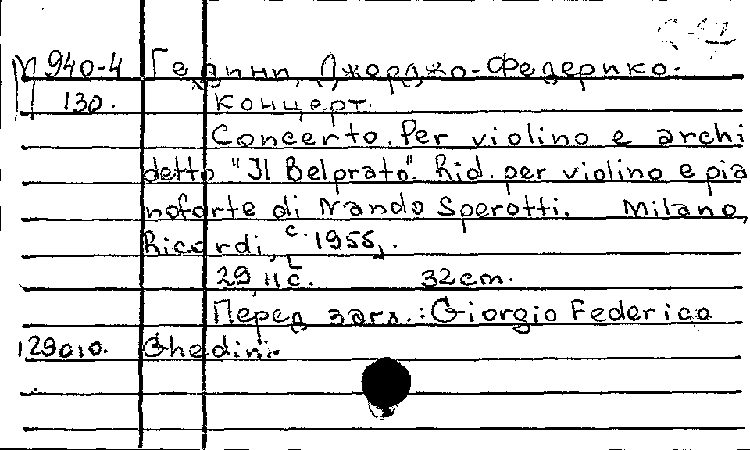 С-12
М 940-4 Гедини, Джорджо-Федерико.
130. Концерт.
Concerto. Per violino e archi
detto "Il Belprato". Rid. per violino e pia
noforte di Nando Sperotti. Milano,
Ricordi, [c. 1955].
29 с. 32 cm.
Перед загл.: Giorgio Federico
129010. Ghedini.